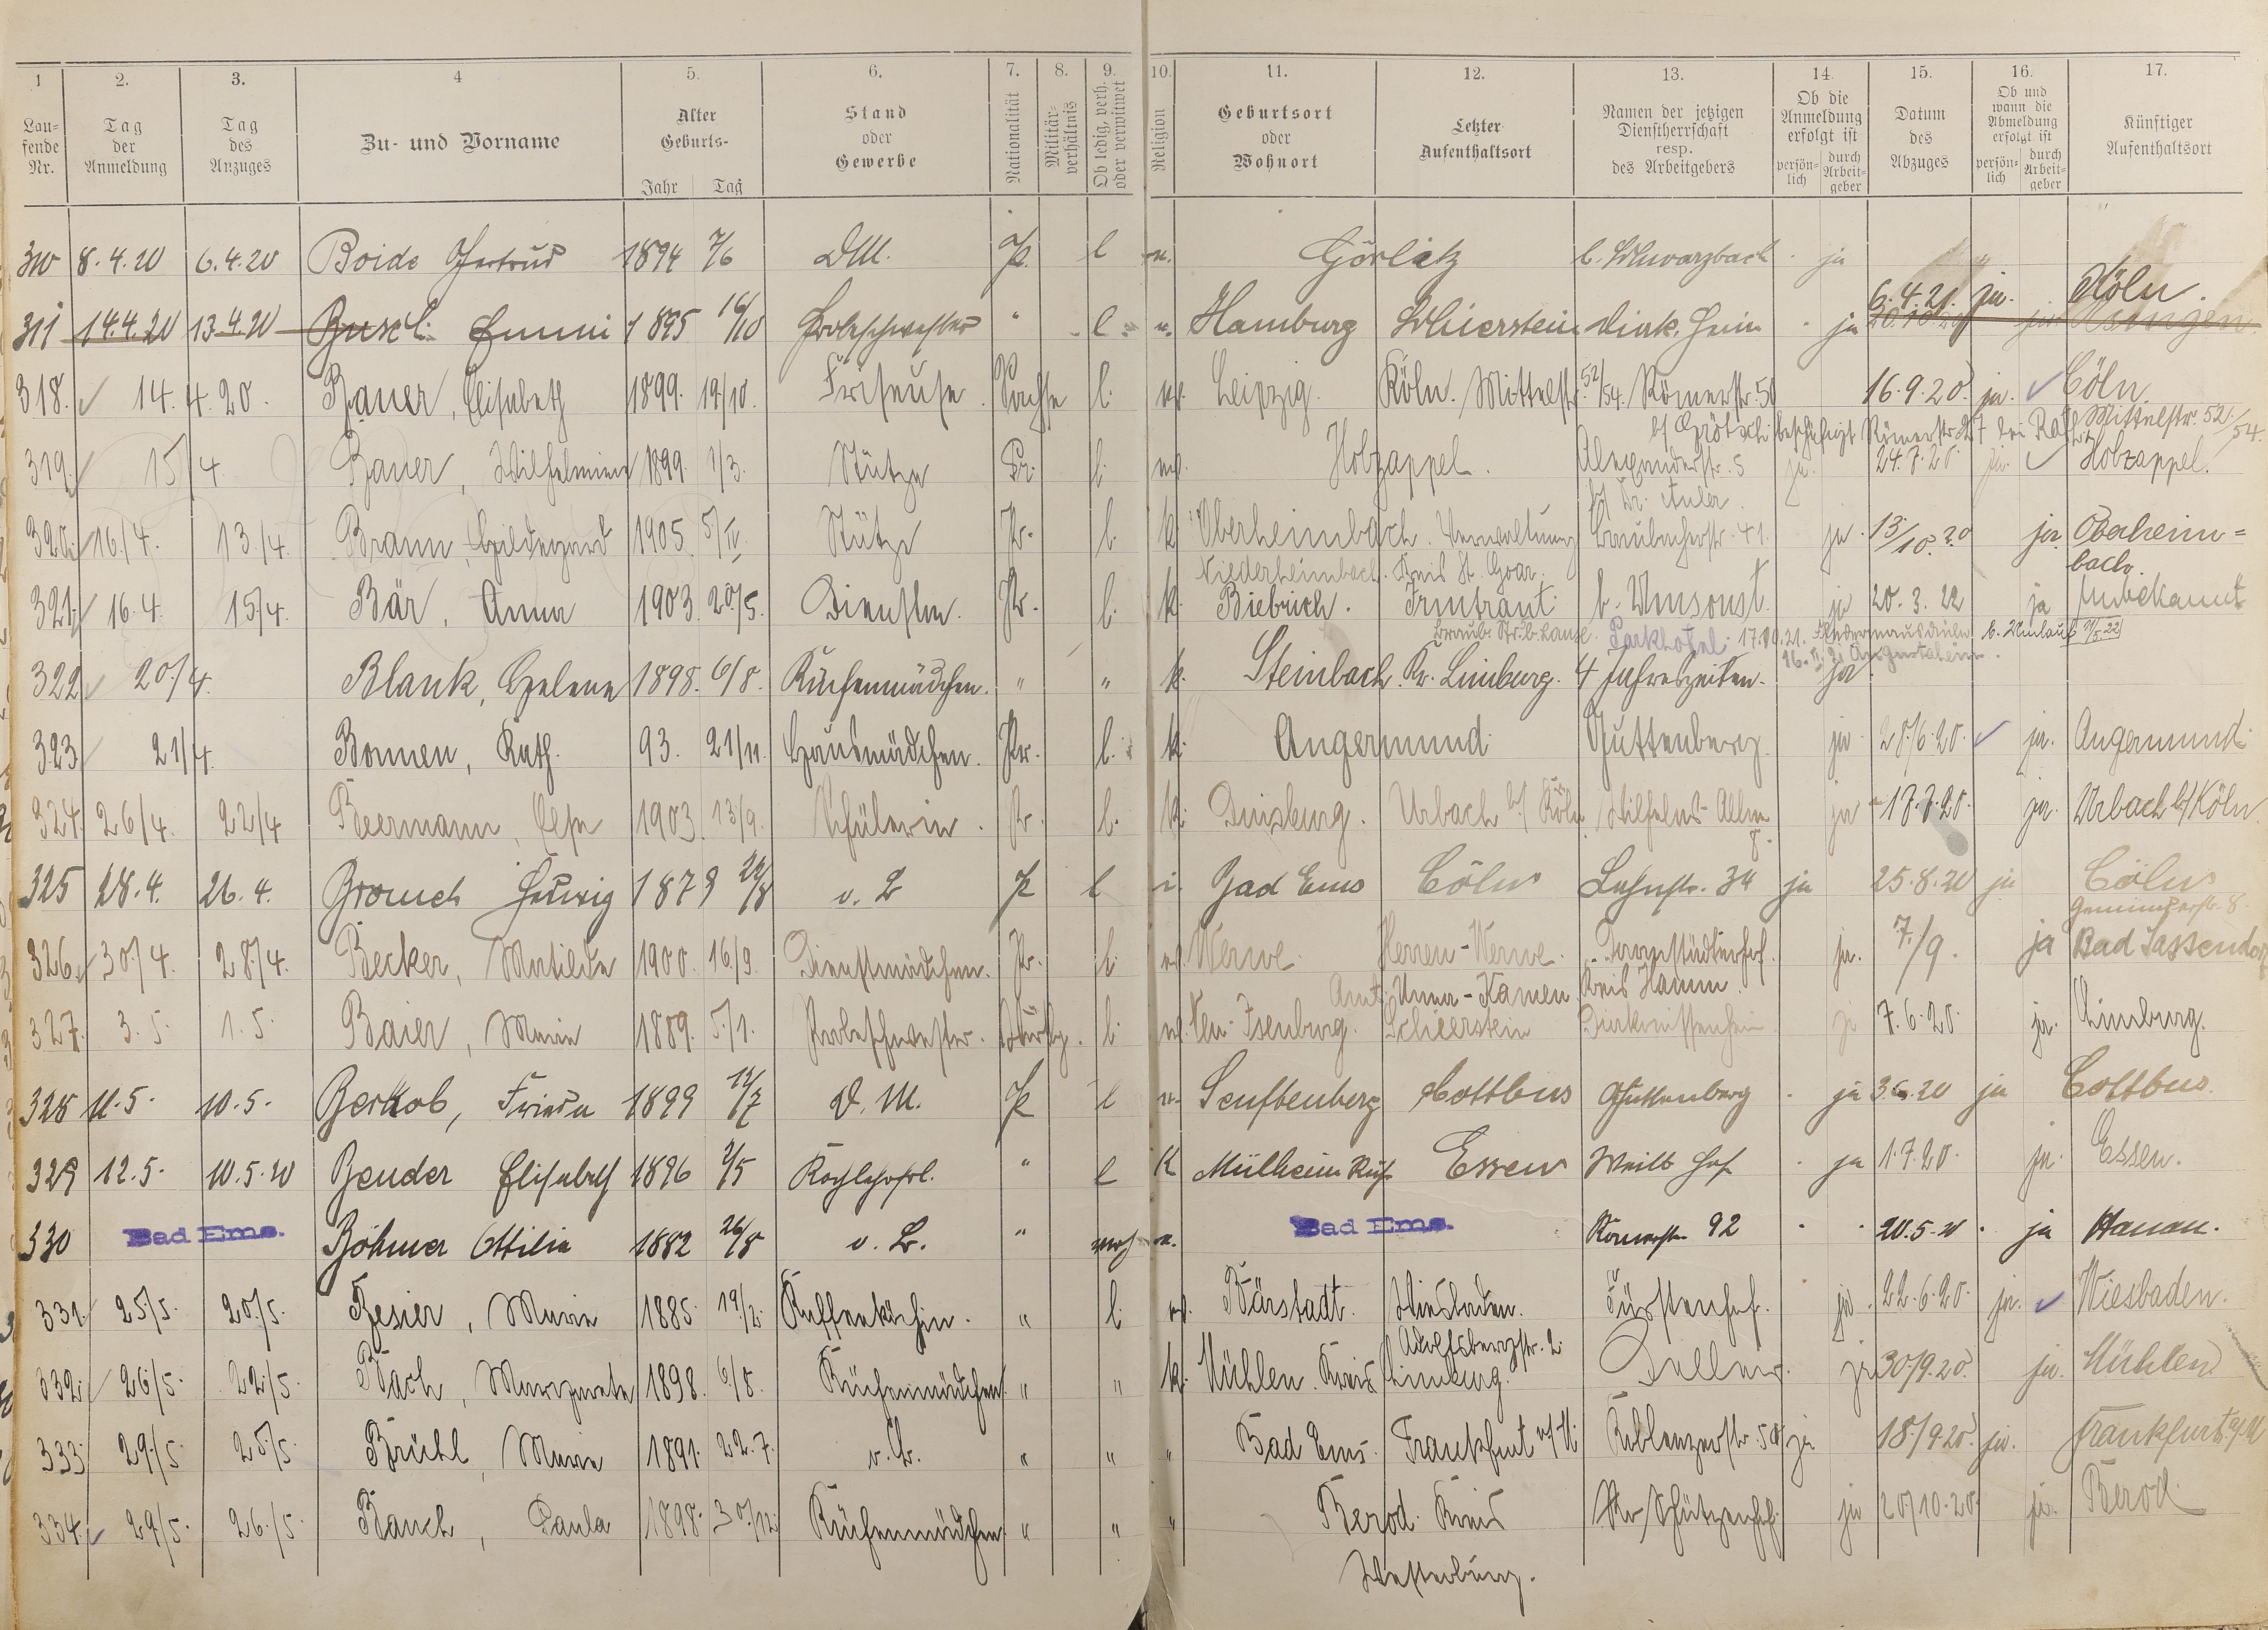 1 2. 3. 4 5. 6. 7. 8. 9. 10. 11. 12. 13. 14. 15. 16. 17.
Lau-
fende
Nr.
Tag
der
Anmeldung
Tag
des
Anzuges
Zu- und Vorname
Alter
Geburts-
Jahr Tag
Stand
oder
Gewerbe
Nationalität
Militär-
verhältnis
Ob ledig, verh.
oder verwitwet
Religion
Geburtsort
oder
Wohnort
Letzter
Aufenthaltsort
Namen der jetzigen
Dienstherrschaft
resp.
des Arbeitgebers
Ob die
Anmeldung
erfolgt ist
persön-
lich
durch
Arbeit-
geber
Datum
des
Abzuges
Ob und
wann die
Abmeldung
erfolgt ist
persön-
lich
durch
Arbeit-
geber
Künftiger
Aufenthaltsort
8.4.20 6.4.20 Boide Gertrud 1894 7/6 DM. P. l Görlitz b. Schwarzbach ja
6.4.21. ja. Köln.
14.4.20 13.4.20 Busch Emmi 1895 16/10 Probeschwester " l Hamburg Schierstein Diak. Heim ja
318. 14.4.20. Bauer, Elisabeth 1899. 19/10. Friseuse Sachse l. Leipzig. Köln. Mittelstr. 52/54. Römerstr. 50 16.9.20. ja. Cöln.
Mittelstr. 52/54
319. 15/4. Bauer, Wilhelmine 1899. 1/3. Stütze Pr. l. Holzappel. Alexanderstr. 5 ja. 24.7.20. ja. Holzappel.
bf Dr. Auler.
320. 16./4. 13./4. Braun, Hildegard 1905. 5/IV. Stütze Pr. l. k. Oberheimbach. Verwaltung Braubacherstr. 41. ja. 13/10.20 ja. Oberheim-
bach.
Niederheimbach. Kreis St. Goar.
321. 16.4. 15/4. Bär, Anna 1903. 20/5. Dienstm. Pr. l. k. Biebrich. Irmtraut b. Umsonst. ja 20.3.22 ja Unbekannt
Parkhotel. 17.10.21.
322 20./4. Blank, Helene 1898. 6/8. Küchenmädchen. " " k. Steinbach. Kr. Limburg. 4 Jahreszeiten. ja
323 21/4. Bonnen, Kath. 93. 21/11. Hausmädchen. Pr. l. k. Angermund Guttenberg ja 28/6.20. ja. Angermund.
324. 26/4. 22/4 Beermann, Else 1903. 13/9. Schülerin. Pr. l. k. Duisburg. Urbach b/ Köln Wilhelms-Allee
8. ja 17.7.20. ja. Urbach b/Köln.
325 28.4. 26.4. Hedwig 1879 v. B P l i. Bad Ems Cöln Lahnstr. 34 ja 25.8.20 ja Cöln
326. 30./4. 28./4. Becker, Matilde 1900. 16/9. Dienstmädchen. Pr. l. Werve. Herren-Werve. Darmstädterhof. ja. 7./9. ja Bad Sassendorf
Amt: Unna-Kamen Kreis Hamm.
327. 3.5. 1.5. Baier, Marie 1889. 5/1. Probeschwester. l. Isenburg. Schierstein Diakonissenheim ja 7.6.20. ja. Limburg.
328 11.5. 10.5. Berkob, Frieda 1899 D.M. P l Senftenberg Cottbus Guttenberg ja 3.6.20 ja Cottbus.
329 12.5. 10.5.20 Bender Elisabeth 1896 2/5 " l K Mülheim Ruhr Essen Weilb. Hof ja 1.7.20. ja. Essen.
330 Bad Ems. Böhmer Ottilie 1882 26/8 o. B. " Bad Ems. Römerstr. 92 20.5.20 ja Hanau.
331. 25/5. 20./5. Besier, Marie 1885. 19/2. Kaffeeköchin. " l. Bärstadt. Wiesbaden. Fürstenhof. ja. 22.6.20. ja. Wiesbaden.
Adolfsbergstr. 2.
332. 26/5. 22/5. Bach, Margarete 1898. 6/8. Küchenmädchen. " " k. Mühlen. Kreis Limburg. ja 30/9.20. ja. Mühlen
333. 29/5. 25/5. Brühl, Marie 1891. 22.7. o. B. " " " Bad Ems. Frankfurt a/M. Koblenzerstr. 58 ja 18./9.20. ja. Frankfurt a/M
334. 29/5. 26./5. Bauch, Paula 1898. 30/12. Küchenmädchen " " " Berod. Kreis ja 20/10.20. ja. Berod.
Westerburg.